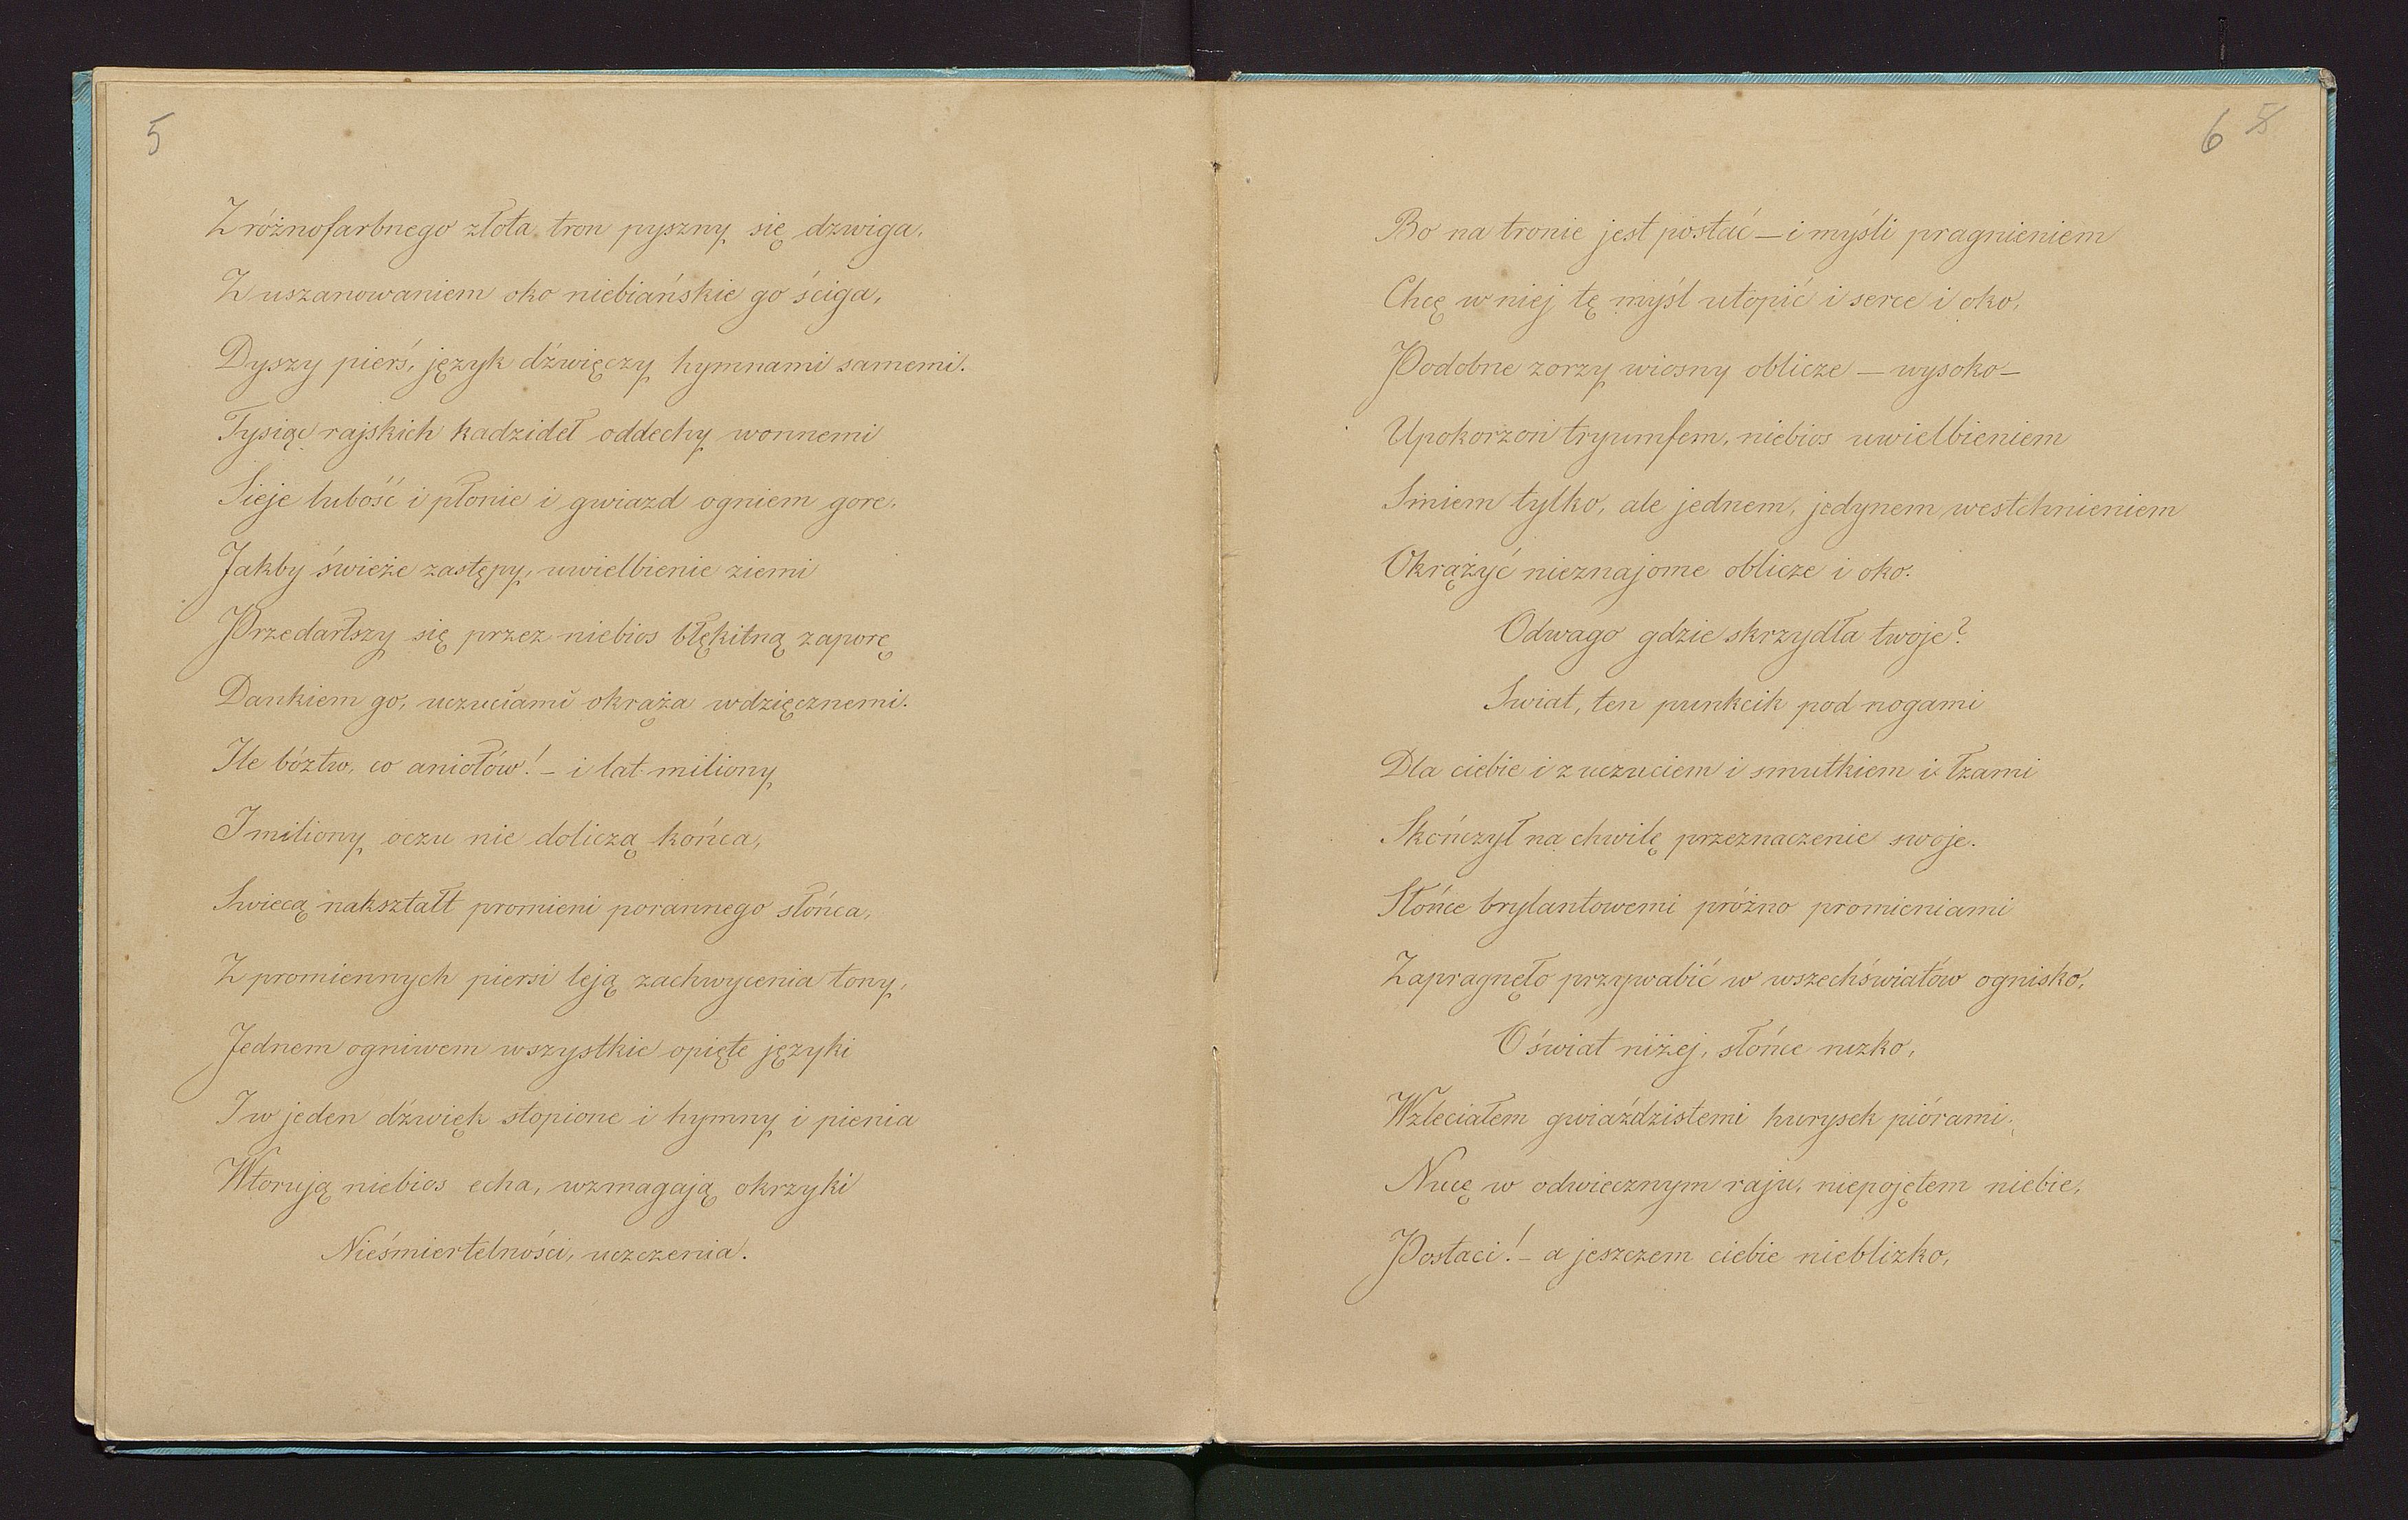 5
Z różnofarbnego złota tron pyszny się dzwiga,
Z uszanowaniem oko niebiańskie go ściga,
Dyszy pierś, język dźwięczy hymnami samemi.
Tysiąc rajskich kadzideł oddechy wonnemi
Sieje lubość i płonie i gwiazd ogniem gore.
Jakby świeże zastępy, uwielbienie ziemi
Przedarłszy się przez niebios błękitną zaporę
Dankiem go, uczuciami okrąża wdzięcznemi.
Ile bóztw, co aniołów! – i lat miliony
I miliony oczu nie doliczą końca,
Swiecą nakształt promieni porannego słońca,
Z promiennych piersi leją zachwycenia tony,
Jednem ogniwem wszystkie opięte języki
I w jeden dźwięk stopione i hymny i pienia
Wtorują niebios echa, wzmagają okrzyki
Nieśmiertelności, uczczenia.
6 5
Bo na tronie jest postać – i myśli pragnieniem
Chcę w niej tę myśl utopić i serce i oko,
Podobne zorzy wiosny oblicze – wysoko –
Upokorzon tryumfem, niebios uwielbieniem
Smiem tylko, ale jednem, jedynem westchnieniem
Okrążyć nieznajome oblicze i oko.
Odwago gdzie skrzydła twoje?
Swiat, ten punkcik pod nogami
Dla ciebie i z uczuciem i smutkiem i łzami
Skończył na chwilę przeznaczenie swoje.
Słońce brylantowemi próżno promieniami
Zapragnęło przywabić w wszechświatów ognisko,
O świat niżej, słońce nizko,
Wzleciałem gwiaździstemi hurysek piórami.
Nucę w odwiecznym raju, niepojętem niebie,
Postaci! – a jeszczem ciebie nieblizko,